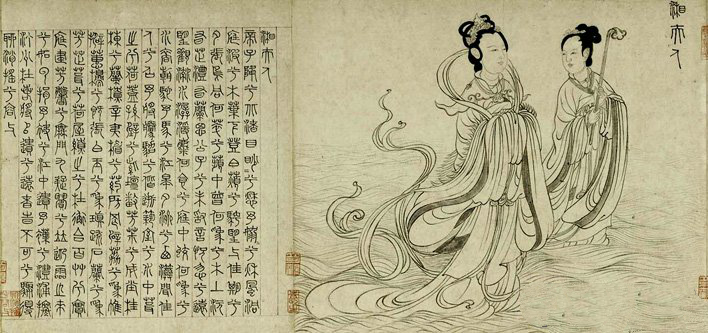 湘夫人
湘夫人
帝子降兮北渚目眇眇兮愁予嫋嫋兮秋風洞
庭波兮木葉下登白薠兮騁望與佳期兮
夕張鳥何萃兮蘋中罾何為兮木上沅
有茝兮醴有蘭思公子兮未敢言荒忽兮遠
望觀流水兮潺湲麋何食兮庭中蛟何為兮
水裔朝馳余馬兮江皋夕濟兮西澨聞佳
人兮召予將騰駕兮偕逝築室兮水中葺
之兮荷蓋蓀壁兮紫壇播芳椒兮成堂桂
棟兮蘭橑辛夷楣兮藥房罔薜荔兮為帷
擗蕙櫋兮既張白玉兮為鎮疏石蘭兮為
芳芷葺兮荷屋繚之兮杜衡合百草兮實
庭建芳馨兮廡門九嶷繽兮並迎靈之來
兮如雲捐余袂兮江中遺余褋兮醴浦搴
汀洲兮杜若將以遺兮遠者時不可兮驟得
聊逍遙兮容與